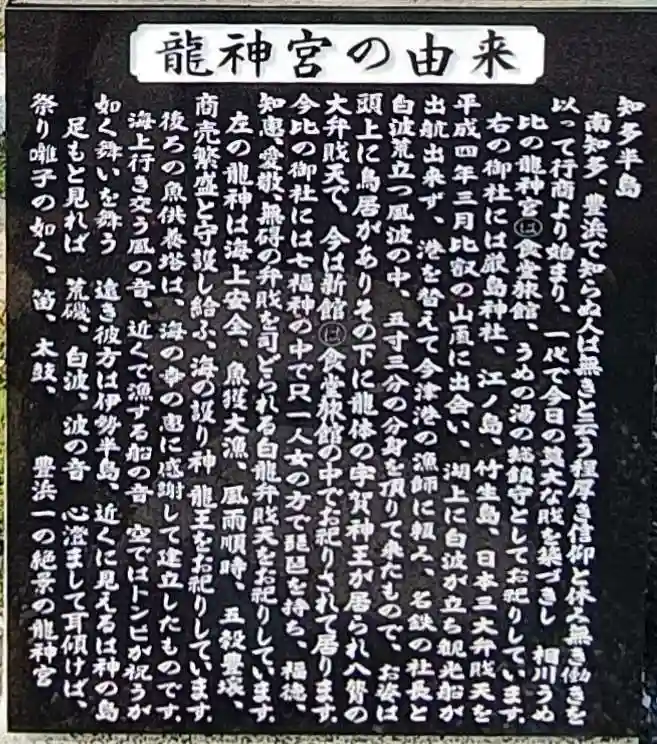 龍神宮の由来
知多半島
南知多、豊浜で知らぬ人は無きと云う程厚き信仰と休え無き働きを
以って行商より始まり、一代で今日の莫大な財を築づきし 相川うめ
比の龍神宮は食堂旅館、うめの湯の総鎮守としてお祀りしています。
右の御社には厳島神社、江ノ島、竹生島、日本三大弁財天を
平成四年三月比叡の山頂に出会い、湖上に白波が立ち観光船が
出航出来ず、港を替えて今津港の漁師に頼み、名鉄の社長と
白波荒立つ風波の中、五寸三分の分身を頂りて来たもので、お姿は
頭上に鳥居がありその下に龍体の宇賀神王が居られ八臂の
大弁財天で、今は新館は食堂旅館の中でお祀りされて居ります。
今比の御社には七福神の中で只一人女の方で琵琶を持ち、福徳、
知恵、愛敬、無碍の弁財を司どられる白龍弁財天をお祀りしています。
左の龍神は海上安全、魚獲大漁、風雨順時、五穀豊穣、
商売繁盛と守護し給ふ、海の護り神龍王をお祀りしています。
後ろの魚供養塔は、海の幸の恵に感謝して建立したものです。
海上行き交う風の音、近くで漁する船の音 空ではトンビが祝うが
如く舞いを舞う 遠き彼方は伊勢半島、近くに見えるは神の島
足もと見れば 荒磯、白波、波の音 心澄まして耳傾けば、
祭り囃子の如く、笛、太鼓、 豊浜一の絶景の龍神宮